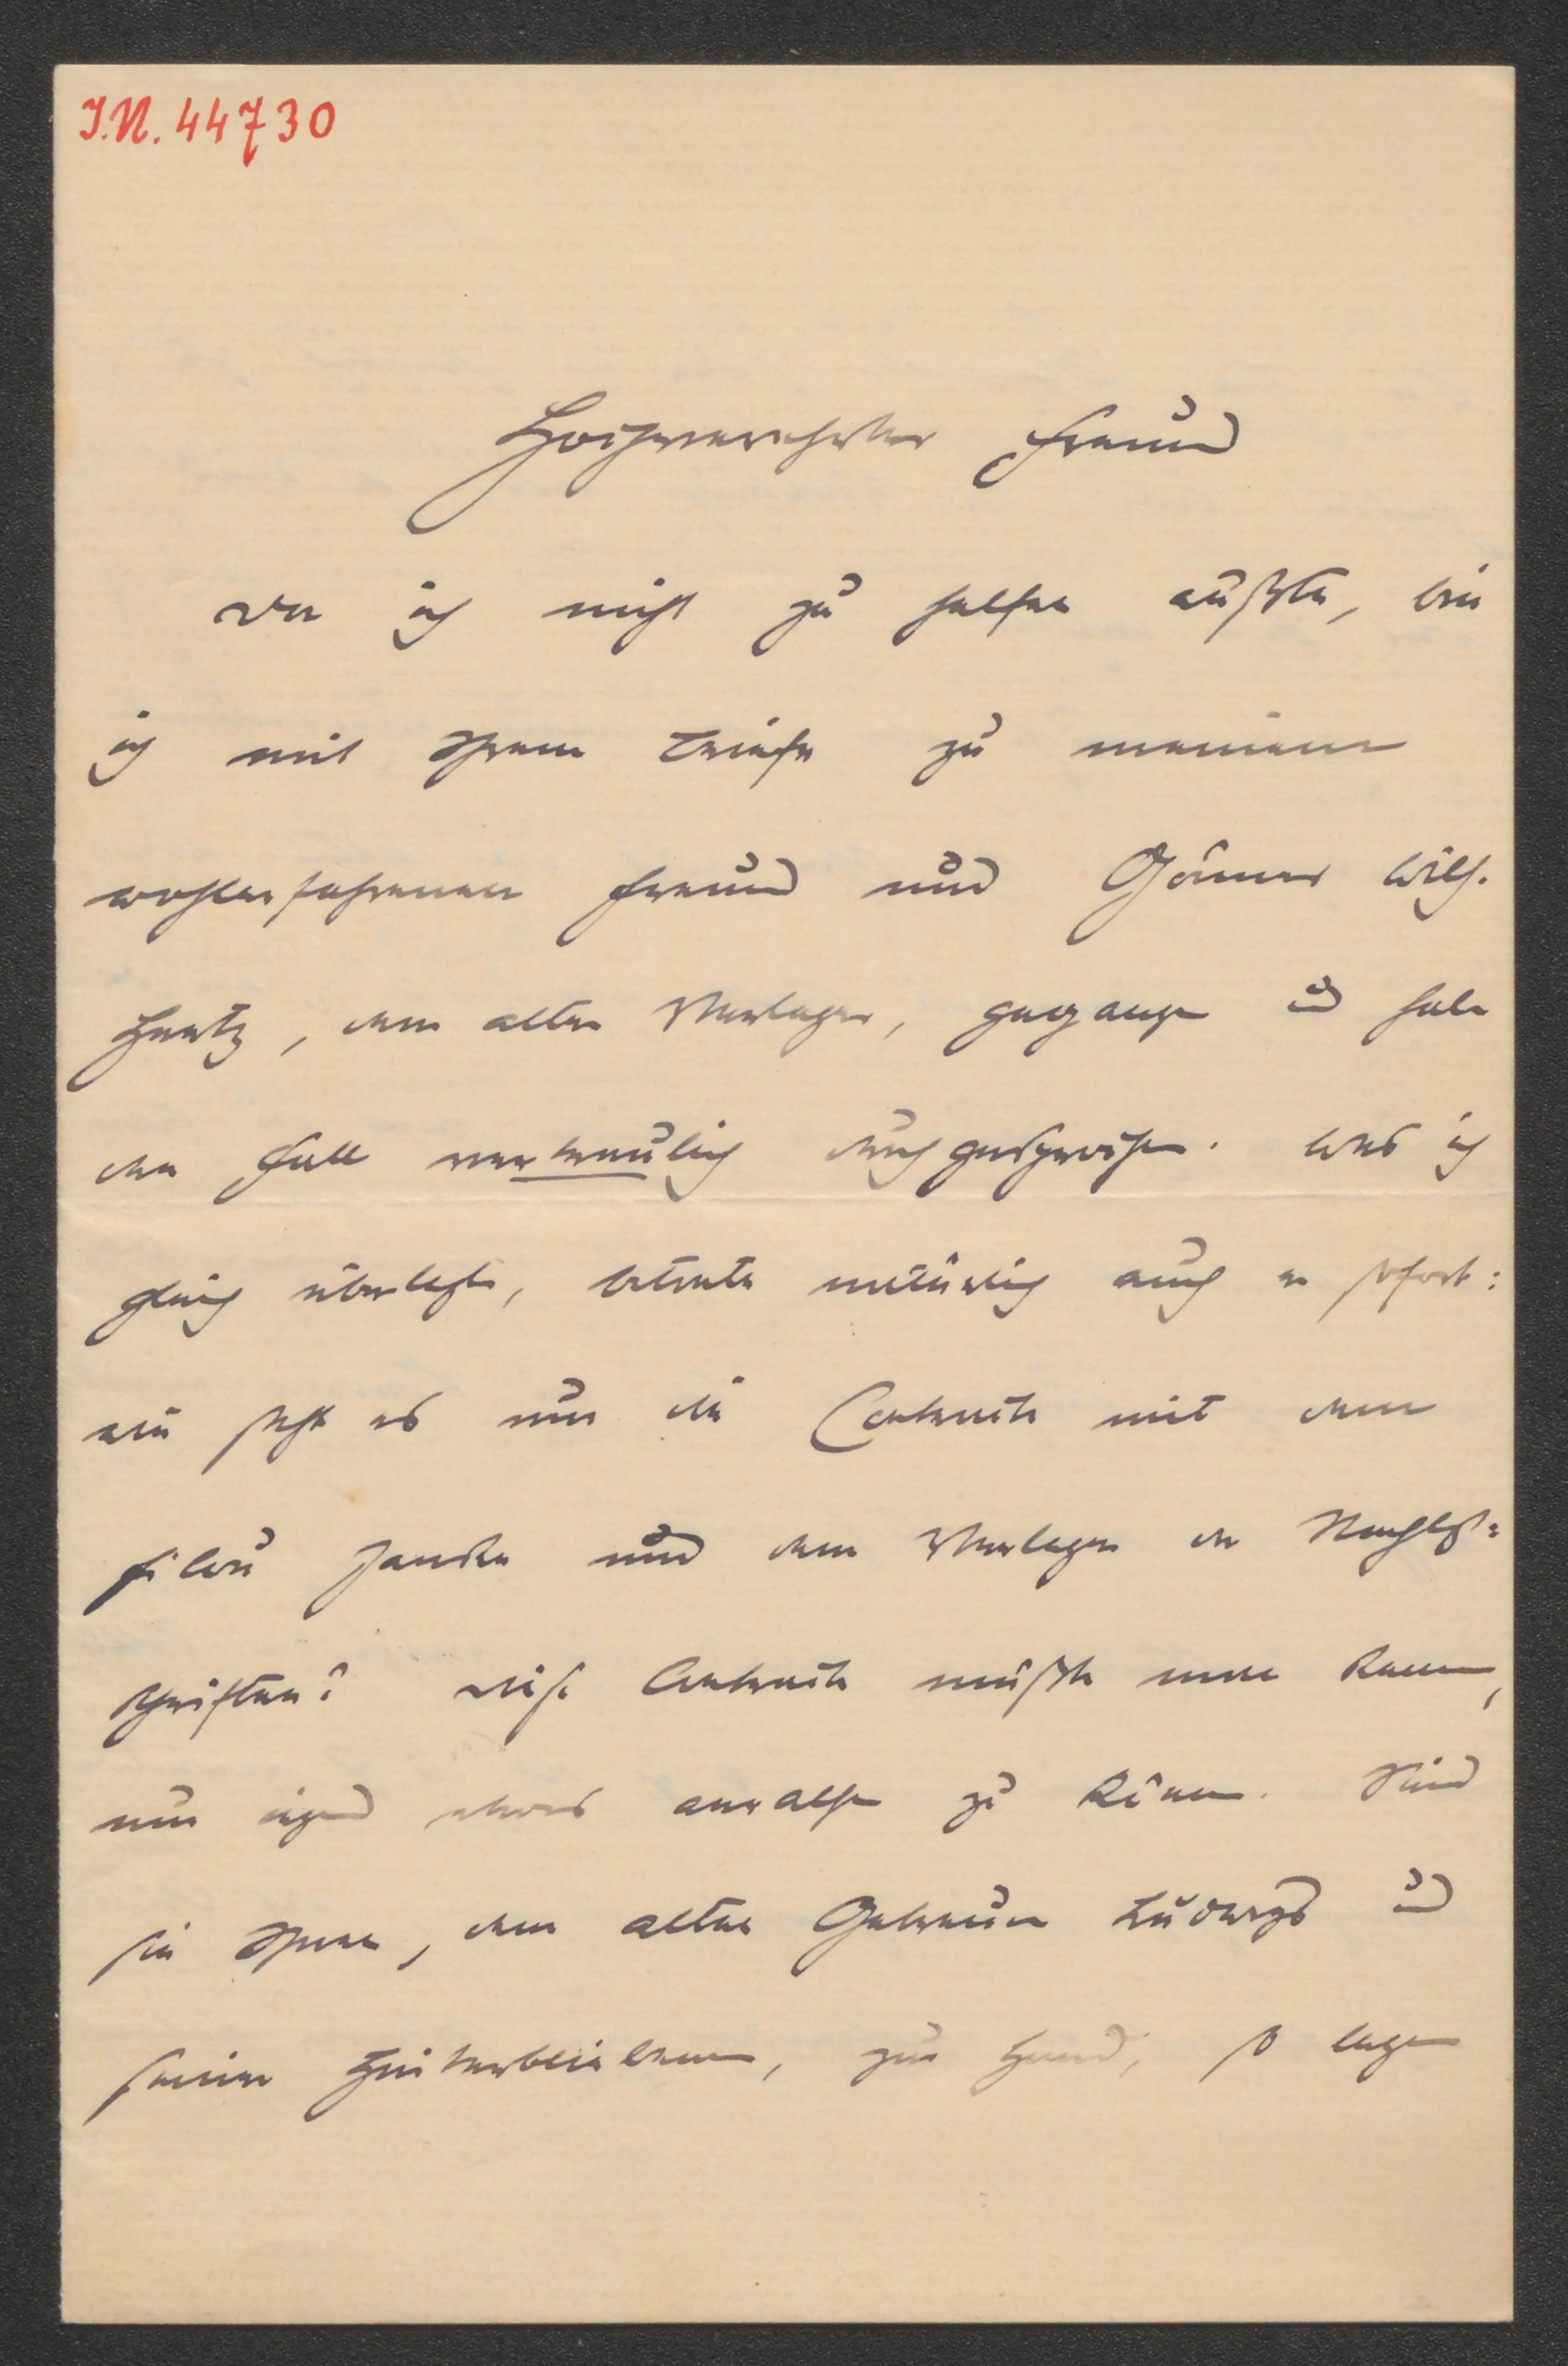 I.N. 44730
Hochverehrter Freund
Da ich nicht zu helfen wußte, bin
ich mit Ihrem Briefe zu meinem
wohlerfahrenen Freund und Gönner Wilh.
Hertz, dem alten Verleger, gegangen u habe
den Fall vertraulich durchgesprochen. Was ich
gleich überlegte, betonte natürlich auch er sofort:
wie steht es um die Contracte mit dem
Filou Janke und dem Verleger der Nachlaß=
schriften? Diese Contracte müßte man kennen,
um irgend etwas anrathen zu können. Sind
sie Ihnen, dem alten Getreuen Ludwigs u
seiner Hinterbliebenen, zur Hand, so legen